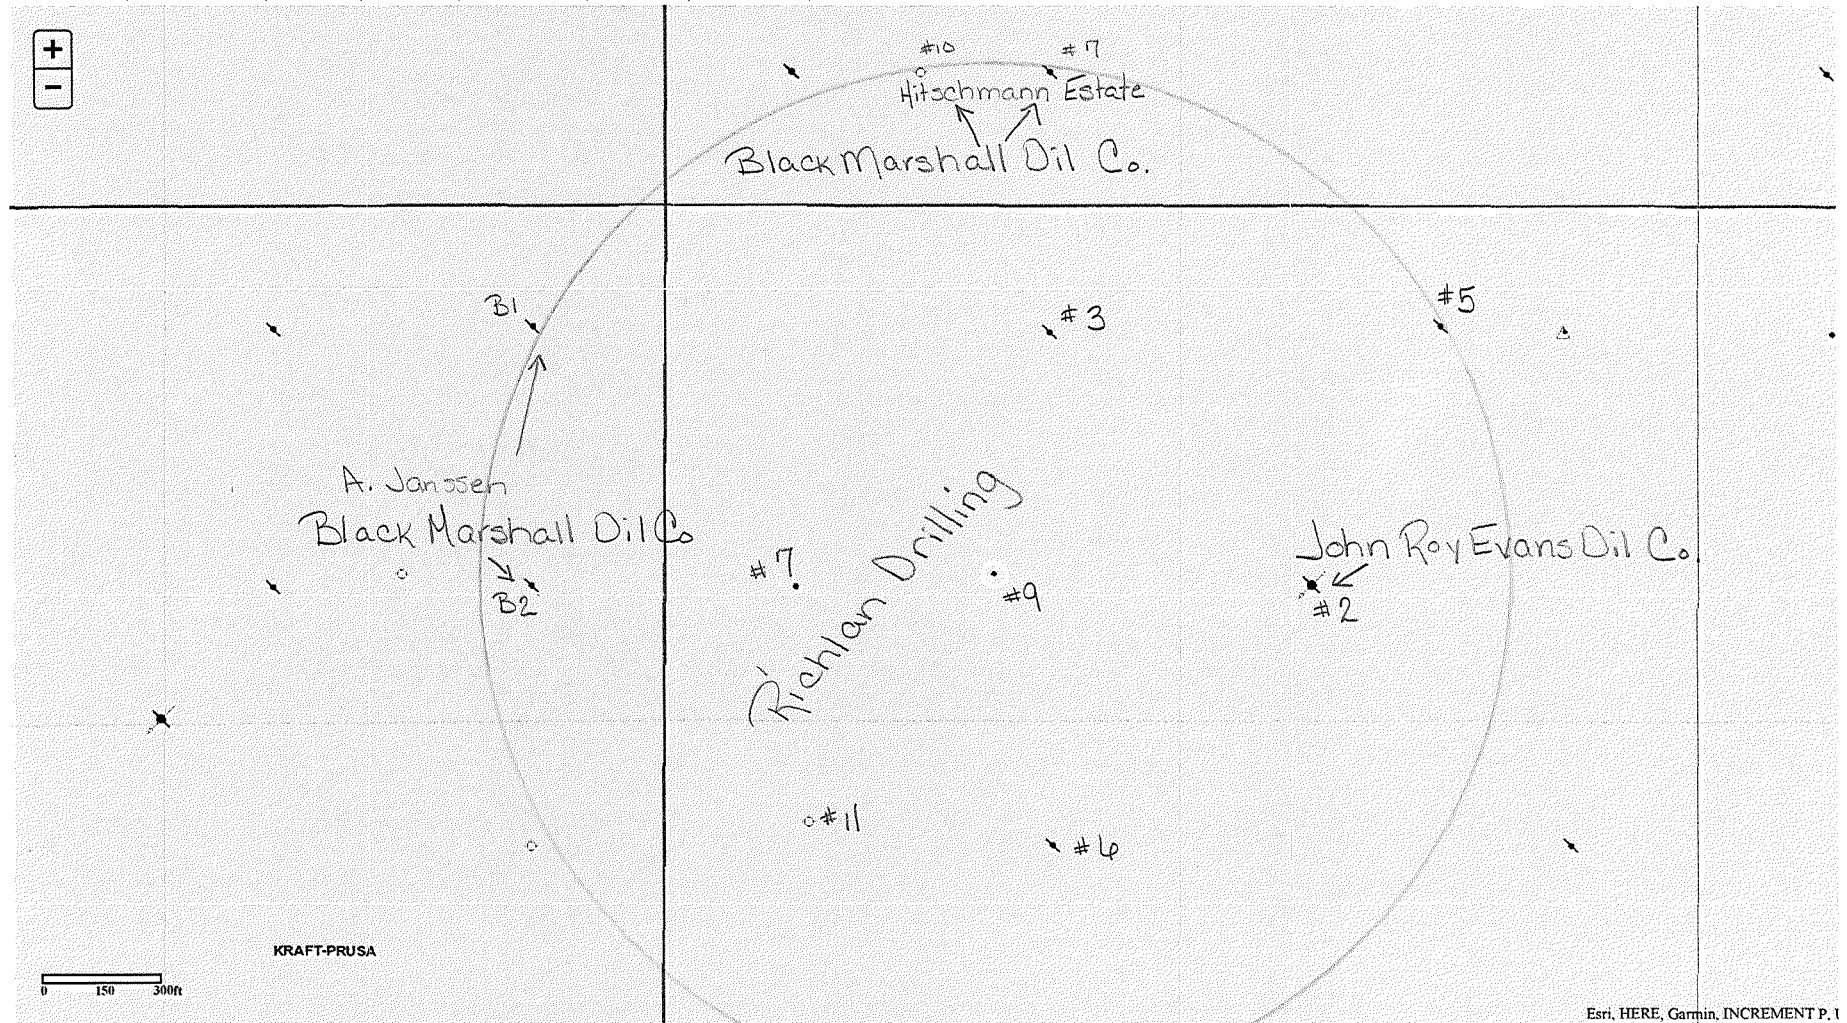 +
−
#10
#7
Hitschmann Estate
Black Marshall Oil Co.
B1
#3
#5
A. Janssen
Black Marshall Oil Co
B2
#7
Richlan Drilling
#9
John Roy Evans Oil Co.
#2
#11
#6
KRAFT-PRUSA
0 150 300ft
Esri, HERE, Garmin, INCREMENT P,